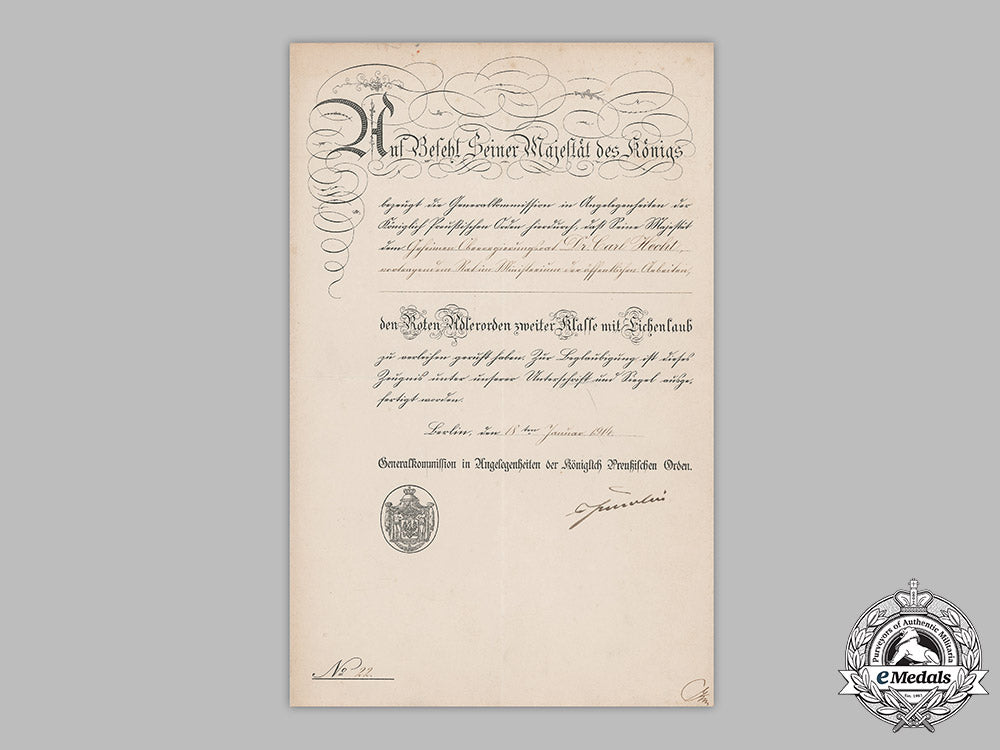 Auf Befehl Seiner Majestät des Königs
bezeugt die Generalkommission in Angelegenheiten der
Königlich Preußischen Orden hierdurch, daß Seine Majestät
dem Geheimen Oberregierungsrat Dr. Carl Hecht,
vortragendem Rat im Ministerium der öffentlichen Arbeiten,
den Roten Adlerorden zweiter Klasse mit Eichenlaub
zu verleihen geruht haben. Zur Beglaubigung ist dieses
Zeugnis unter unserer Unterschrift und Siegel ausge-
fertigt worden.
Berlin, den 18ten Januar 1914.
Generalkommission in Angelegenheiten der Königlich Preußischen Orden.
No 22.
Purveyors of Authentic Militaria
eMedals
Est. 1967